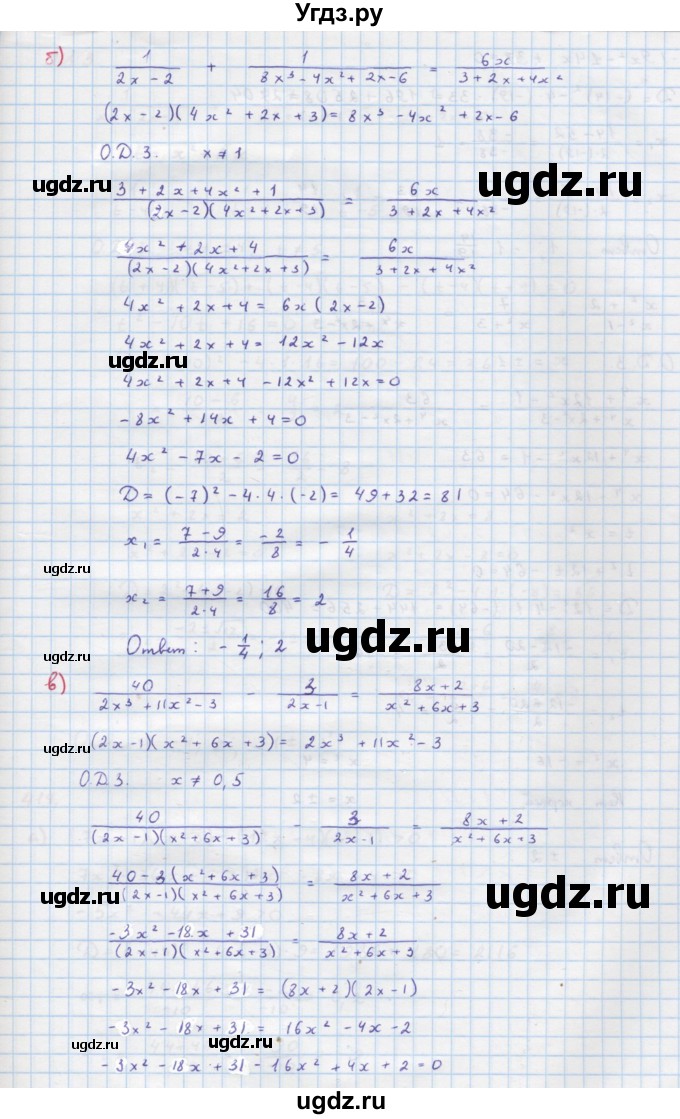 Угдз.ру
б) 1/(2x - 2) + 1/(8x³ - 4x² + 2x - 6) = 6x/(3 + 2x + 4x²)
(2x - 2)(4x² + 2x + 3) = 8x³ - 4x² + 2x - 6
О.Д.З. x ≠ 1
(3 + 2x + 4x² + 1)/((2x - 2)(4x² + 2x + 3)) = 6x/(3 + 2x + 4x²)
ugdz.ru
ugdz.ru
(4x² + 2x + 4)/((2x - 2)(4x² + 2x + 3)) = 6x/(3 + 2x + 4x²)
4x² + 2x + 4 = 6x(2x - 2)
4x² + 2x + 4 = 12x² - 12x
ugdz.ru
4x² + 2x + 4 - 12x² + 12x = 0
-8x² + 14x + 4 = 0
4x² - 7x - 2 = 0
D = (-7)² - 4·4·(-2) = 49 + 32 = 81
x₁ = (7 - 9)/(2·4) = -2/8 = -1/4
ugdz.ru
x₂ = (7 + 9)/(2·4) = 16/8 = 2
ugdz.ru
Ответ: -1/4; 2
ugdz.ru
в) 40/(2x³ + 11x² - 3) - 3/(2x - 1) = (8x + 2)/(x² + 6x + 3)
(2x - 1)(x² + 6x + 3) = 2x³ + 11x² - 3
ugdz.ru
О.Д.З. x ≠ 0,5
40/((2x - 1)(x² + 6x + 3)) - 3/(2x - 1) = (8x + 2)/(x² + 6x + 3)
(40 - 3(x² + 6x + 3))/((2x - 1)(x² + 6x + 3)) = (8x + 2)/(x² + 6x + 3)
ugdz.ru
ugdz.ru
(-3x² - 18x + 31)/((2x - 1)(x² + 6x + 3)) = (8x + 2)/(x² + 6x + 3)
-3x² - 18x + 31 = (8x + 2)(2x - 1)
-3x² - 18x + 31 = 16x² - 4x - 2
ugdz.ru
ugdz.ru
-3x² - 18x + 31 - 16x² + 4x + 2 = 0